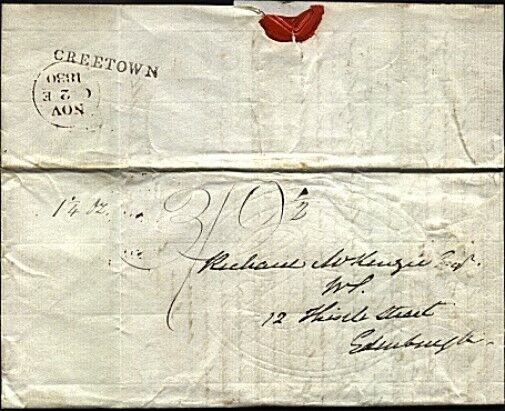 CREETOWN
NOV
C 2 E
1830
1¼ oz.
3/9½
Richard McKenzie Esqr.
WS.
12 Thistle Street
Edinburgh